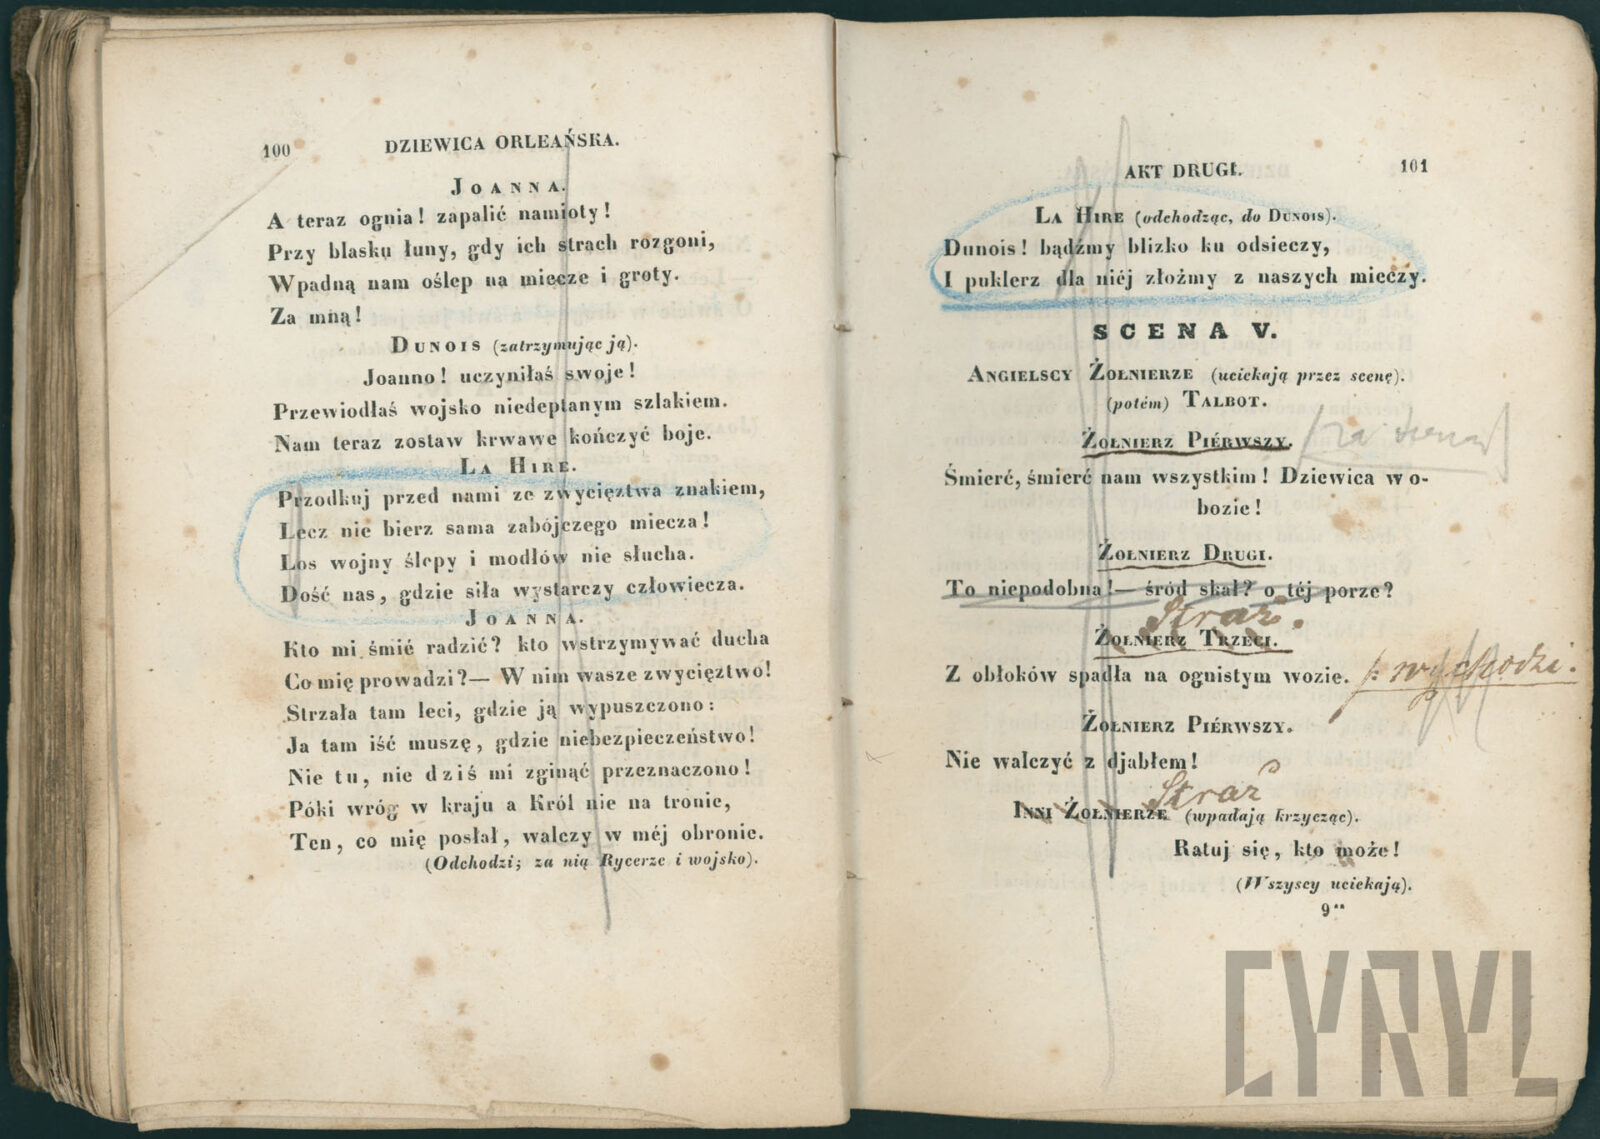 100 DZIEWICA ORLEAŃSKA.
JOANNA.
A teraz ognia! zapalić namioty!
Przy blasku łuny, gdy ich strach rozgoni,
Wpadną nam oślep na miecze i groty.
Za mną!
DUNOIS (zatrzymując ją).
Joanno! uczyniłaś swoje!
Przewiodłaś wojsko niedeptanym szlakiem.
Nam teraz zostaw krwawe kończyć boje.
LA HIRE.
Przodkuj przed nami ze zwycięztwa znakiem,
Lecz nie bierz sama zabójczego miecza!
Los wojny ślepy i modłów nie słucha.
Dość nas, gdzie siła wystarczy człowiecza.
JOANNA.
Kto mi śmié radzić? kto wstrzymywać ducha
Co mię prowadzi?— W nim wasze zwycięztwo!
Strzała tam leci, gdzie ją wypuszczono:
Ja tam iść muszę, gdzie niebezpieczeństwo!
Nie tu, nie dziś mi zginąć przeznaczono!
Póki wróg w kraju a Król nie na tronie,
Ten, co mię posłał, walczy w méj obronie.
(Odchodzi; za nią Rycerze i wojsko).
AKT DRUGI. 101
LA HIRE (odchodząc, do DUNOIS).
Dunois! bądźmy blizko ku odsieczy,
I puklerz dla niéj złożmy z naszych mieczy.
SCENA V.
ANGIELSCY ŻOŁNIERZE (uciekają przez scenę).
(potém) TALBOT.
ŻOŁNIERZ PIÉRWSZY. za sceną
Śmierć, śmierć nam wszystkim! Dziewica w o-
bozie!
ŻOŁNIERZ DRUGI.
To niepodobna!— śród skał? o téj porze?
Straż.
ŻOŁNIERZ TRZECI.
Z obłoków spadła na ognistym wozie. /: wychodzi.
ŻOŁNIERZ PIÉRWSZY.
Nie walczyć z djabłem!
Straż
INNI ŻOŁNIERZE (wpadają krzycząc).
Ratuj się, kto może!
(Wszyscy uciekają).
9**
CYRYL